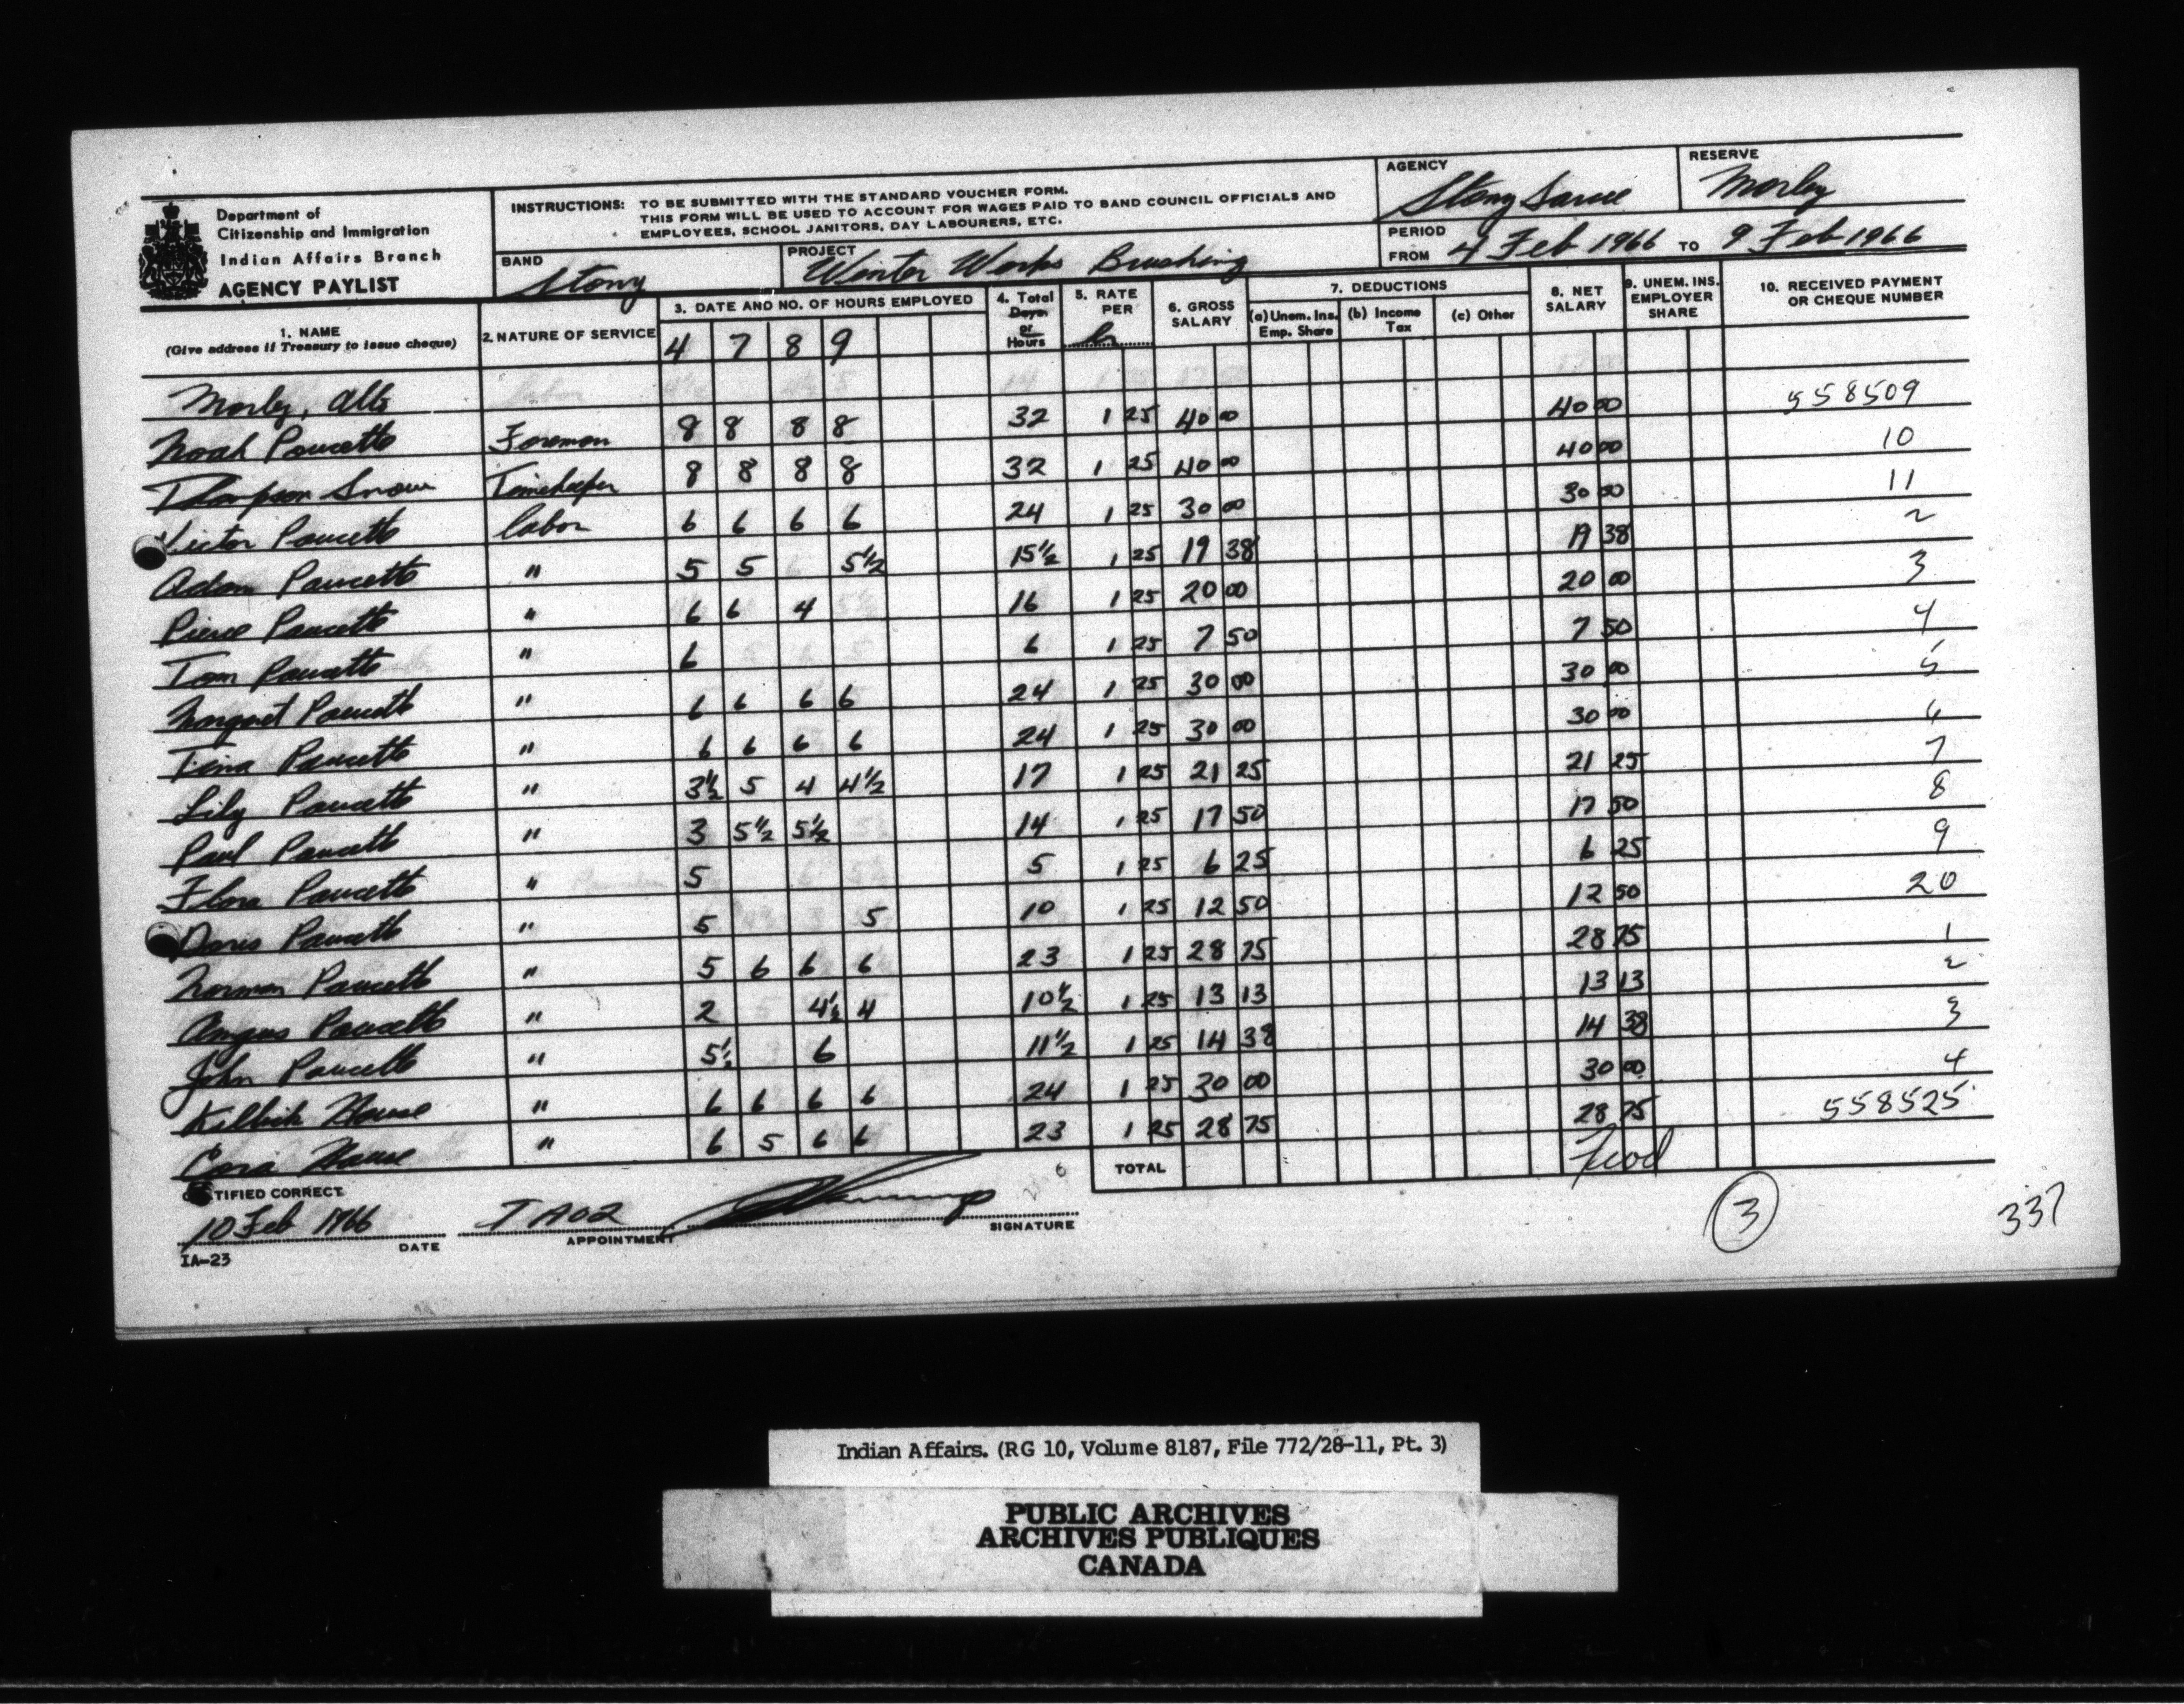 Department of
Citizenship and Immigration
Indian Affairs Branch
AGENCY PAYLIST
INSTRUCTIONS: TO BE SUBMITTED WITH THE STANDARD VOUCHER FORM.
THIS FORM WILL BE USED TO ACCOUNT FOR WAGES PAID TO BAND COUNCIL OFFICIALS AND
EMPLOYEES, SCHOOL JANITORS, DAY LABOURERS, ETC.
AGENCY Stony Sarcee
RESERVE Morley
BAND Stony
PROJECT Winter Works Brushing
PERIOD
FROM 4 Feb 1966 TO 9 Feb 1966
1. NAME
(Give address if Treasury to issue cheque)
2. NATURE OF SERVICE
3. DATE AND NO. OF HOURS EMPLOYED
4 7 8 9
4. Total Days or Hours
5. RATE PER hr
6. GROSS SALARY
7. DEDUCTIONS
(a) Unem. Ins. Emp. Share
(b) Income Tax
(c) Other
8. NET SALARY
9. UNEM. INS. EMPLOYER SHARE
10. RECEIVED PAYMENT OR CHEQUE NUMBER
Morley, Alta
Noah Poucette Foreman 8 8 8 8 32 1 25 40 00 40 00 558509
Thompson Snow Timekeeper 8 8 8 8 32 1 25 40 00 40 00 10
Victor Poucette labor 6 6 6 6 24 1 25 30 00 30 00 11
Adam Poucette " 5 5 5½ 15½ 1 25 19 38 19 38 2
Pierre Poucette " 6 6 4 16 1 25 20 00 20 00 3
Tom Poucette " 6 6 1 25 7 50 7 50 4
Margaret Poucette " 6 6 6 6 24 1 25 30 00 30 00 5
Tina Poucette " 6 6 6 6 24 1 25 30 00 30 00 6
Lily Poucette " 3½ 5 4 4½ 17 1 25 21 25 21 25 7
Paul Poucette " 3 5½ 5½ 14 1 25 17 50 17 50 8
Flora Poucette " 5 5 1 25 6 25 6 25 9
Doris Poucette " 5 5 10 1 25 12 50 12 50 20
Norman Poucette " 5 6 6 6 23 1 25 28 75 28 75 1
Angus Poucette " 2 4½ 4 10½ 1 25 13 13 13 13 2
John Poucette " 5½ 6 11½ 1 25 14 38 14 38 3
House " 6 6 6 6 24 1 25 30 00 30 00 4
Cora House " 6 5 6 6 23 1 25 28 75 28 75 558525
TOTAL
CERTIFIED CORRECT
10 Feb 1966
DATE
APPOINTMENT
SIGNATURE
IA-23
3
337
Indian Affairs. (RG 10, Volume 8187, File 772/28-11, Pt. 3)
PUBLIC ARCHIVES
ARCHIVES PUBLIQUES
CANADA